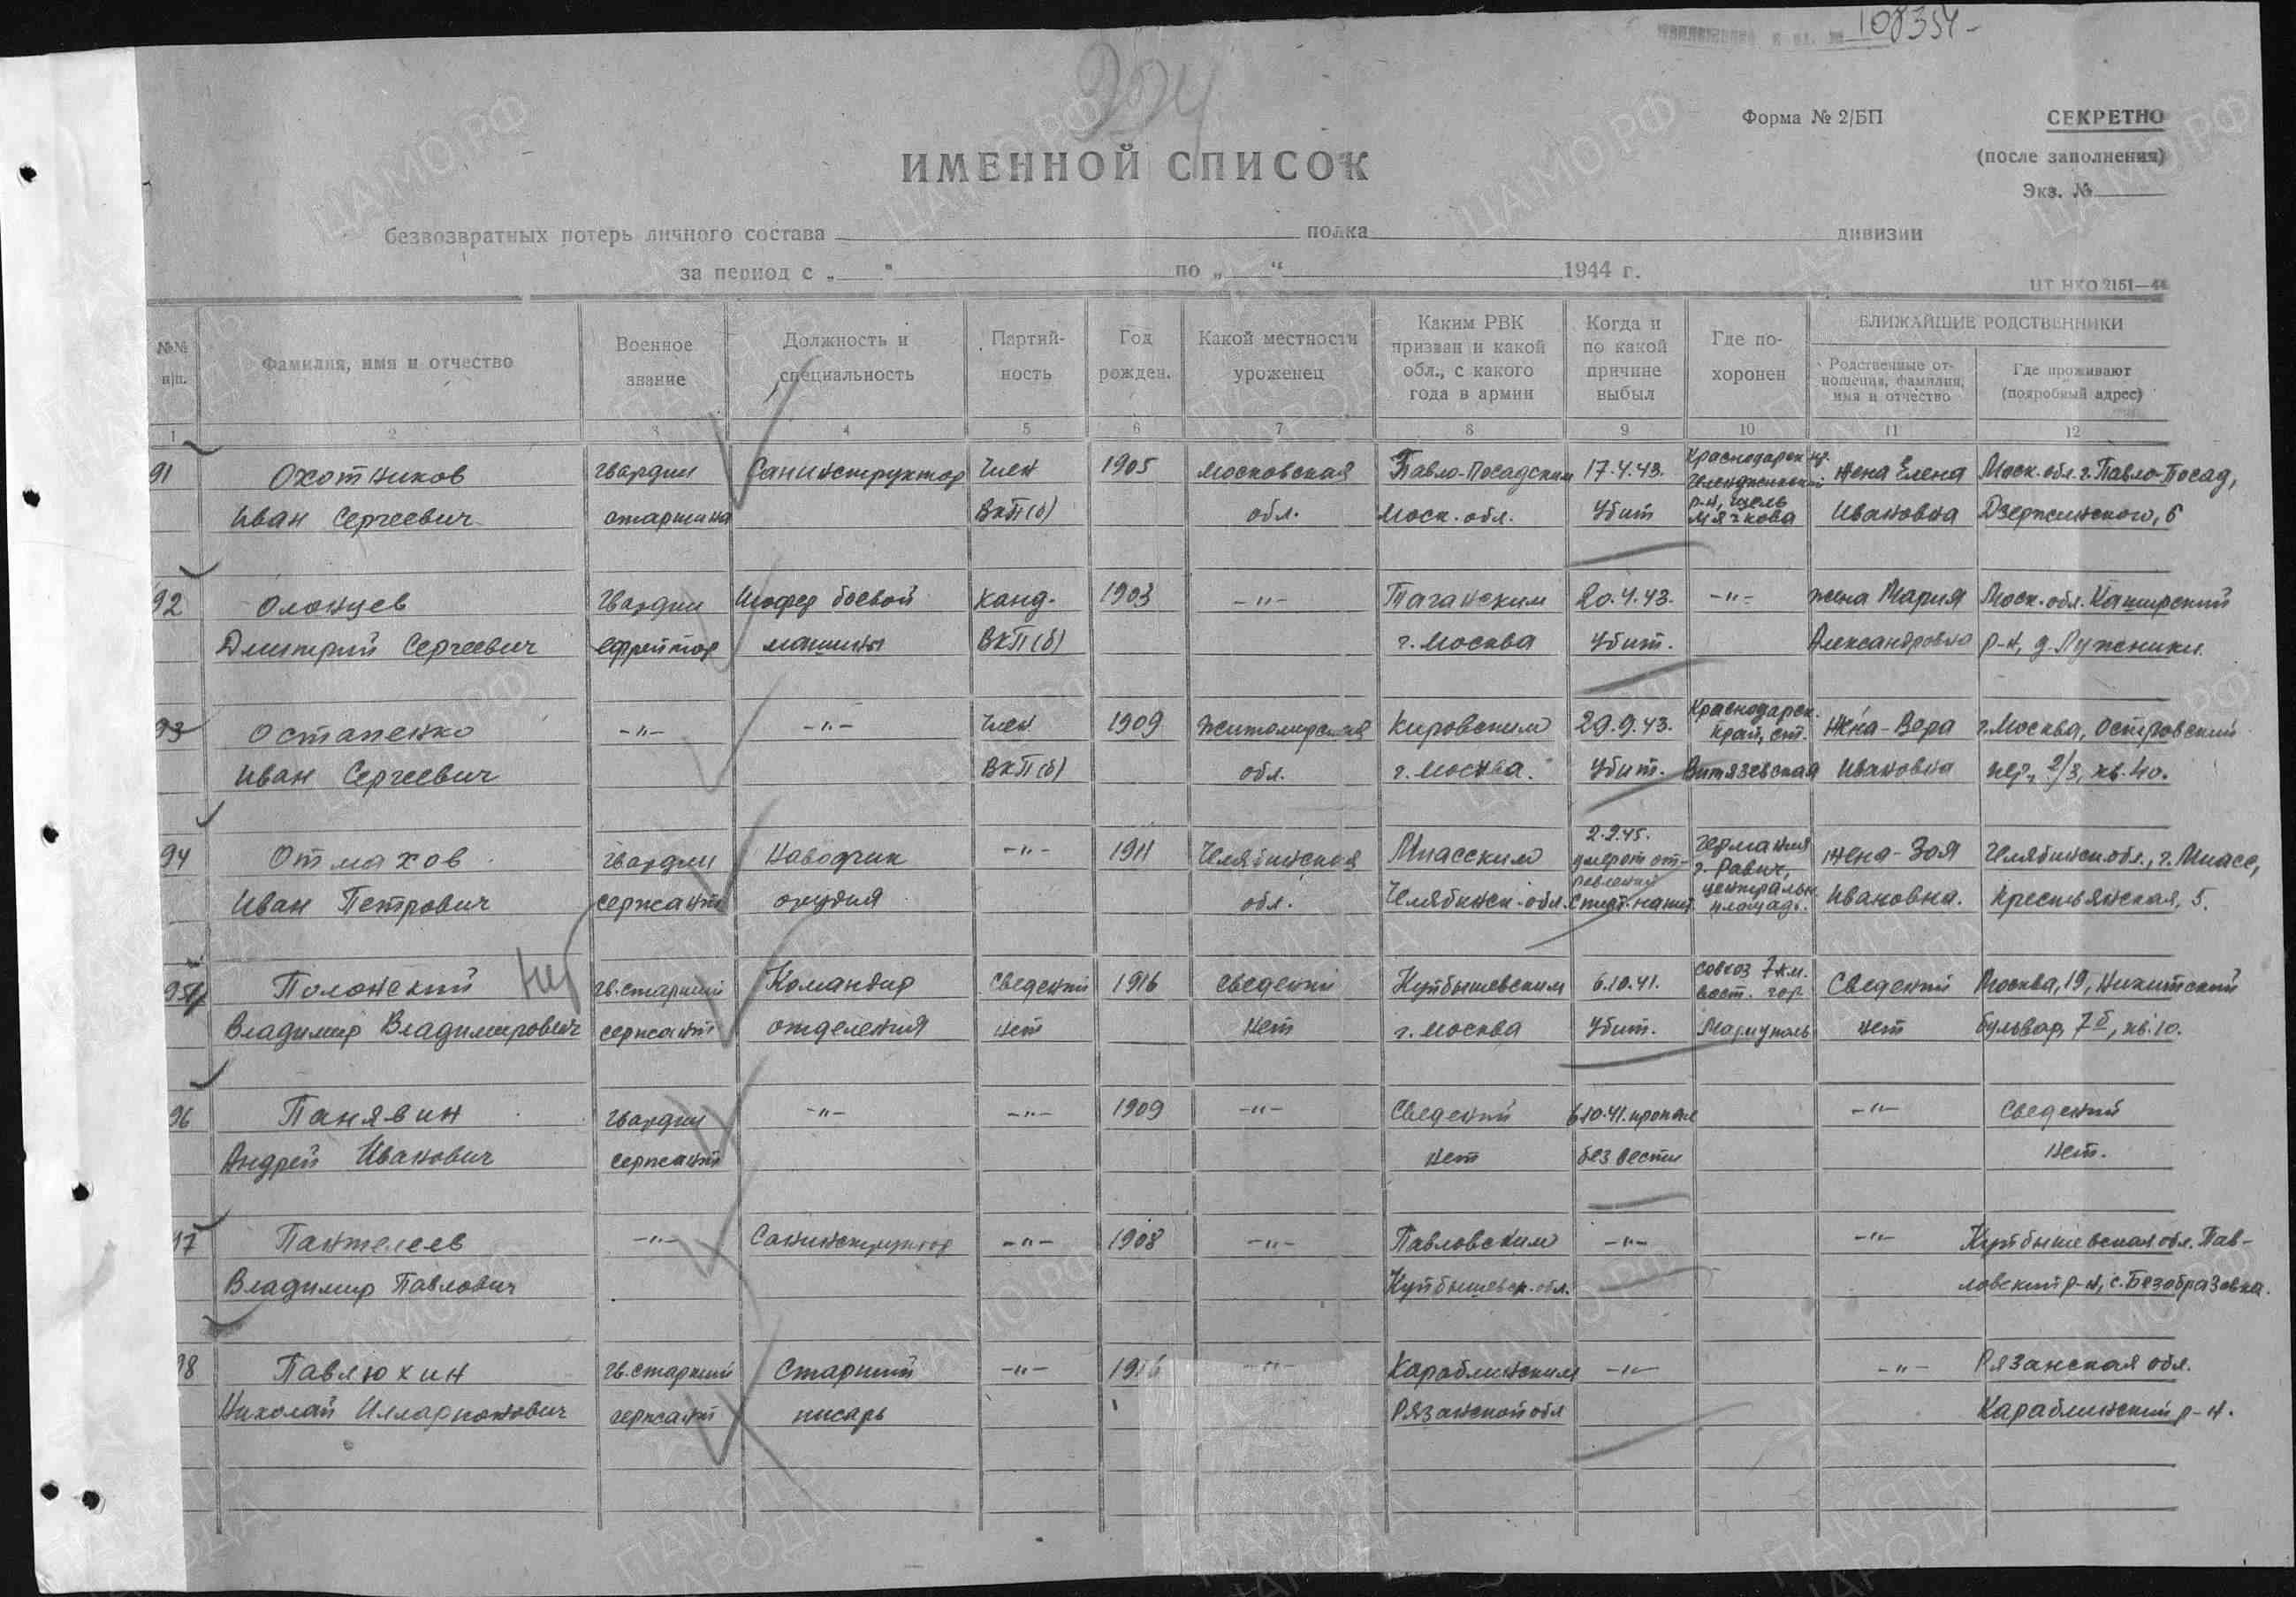 108354-
224
Форма № 2/БП
СЕКРЕТНО
(после заполнения)
Экз. №
ИМЕННОЙ СПИСОК
безвозвратных потерь личного состава полка дивизии
за период с „ " по „ " 1944 г.
ЦТ НКО 2151—44
№№ п/п.
Фамилия, имя и отчество
Военное звание
Должность и специальность
Партий- ность
Год рожден.
Какой местности уроженец
Каким РВК призван и какой обл., с какого года в армии
Когда и по какой причине выбыл
Где по- хоронен
БЛИЖАЙШИЕ РОДСТВЕННИКИ
Родственные от- ношения, фамилия, имя и отчество
Где проживают (подробный адрес)
1 2 3 4 5 6 7 8 9 10 11 12
91 Охотников гвардии Санинструктор Член 1905 Московская Павло-Посадским 17.4.43. Краснодарск. Геленджикский жена Елена Моск. обл. г. Павло-Посад,
Иван Сергеевич старшина ВКП(б) обл. Моск. обл. Убит р-н, щель Мячкова Ивановна Дзержинского, 6
92 Олонцев гвардии Шофер боевой Канд. 1903 -"- Таганским 20.4.43. -"- жена Мария Моск. обл. Каширский
Дмитрий Сергеевич ефрейтор машины ВКП(б) г. Москва Убит. Александровна р-н, д. Лужники.
93 Остапенко -"- -"- Член 1909 Житомирская Кировским 29.9.43. Краснодарск. край, ст. Жена-Вера г. Москва, Островский
Иван Сергеевич ВКП(б) обл. г. Москва. Убит. Витязевская Ивановна пер, 2/3, кв. 40.
94 Отмахов гвардии Наводчик -"- 1911 Челябинская Миасским 2.2.45. умер от от- Германия г. Равич, жена-Зоя Челябинск обл., г. Миасс,
Иван Петрович сержант орудия обл. Челябинск. обл. равления спирт. напит. центральн. площадь. Ивановна. Крестьянская, 5.
95 Полонский Нет гв. старший Командир Сведений 1916 Сведений Куйбышевским 6.10.41. совхоз 7 км. вост. гор. Сведений Москва, 19, Никитский
Владимир Владимирович сержант отделения нет нет г. Москва Убит. Мариуполь нет бульвар, 7б, кв. 10.
96 Панявин гвардии -"- -"- 1909 -"- Сведений 6.10.41. пропал -"- Сведений
Андрей Иванович сержант нет без вести нет.
97 Пантелеев -"- Санинструктор -"- 1908 -"- Павловским -"- -"- Куйбышевская обл. Пав-
Владимир Павлович Куйбышевск. обл. ловский р-н, с. Безобразовка.
98 Павлюхин гв. старший Старший -"- 1916 -"- Кораблинским -"- -"- Рязанская обл.
Николай Илларионович сержант писарь Рязанской обл Кораблинский р-н.
ЦАМО.РФ
ПАМЯТЬ НАРОДА